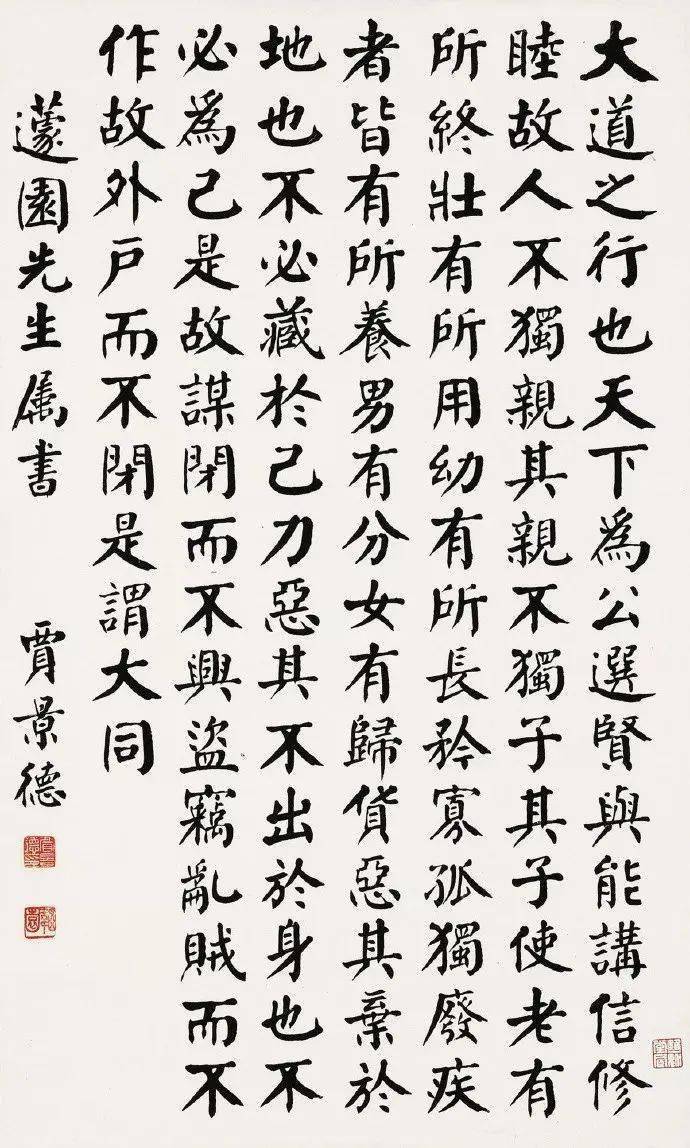 大道之行也天下為公選賢與能講信修
睦故人不獨親其親不獨子其子使老有
所終壯有所用幼有所長矜寡孤獨廢疾
者皆有所養男有分女有歸貨惡其棄於
地也不必藏於己力惡其不出於身也不
必為己是故謀閉而不興盜竊亂賊而不
作故外戶而不閉是謂大同
蘧園先生属書 賈景德